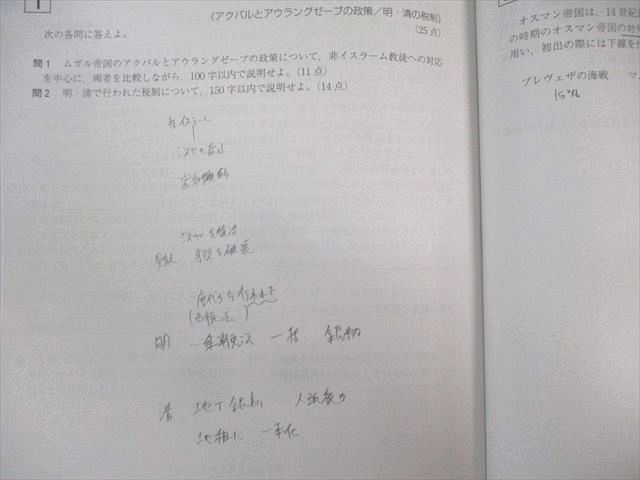 1
《アクバルとアウラングゼーブの政策/明・清の税制》
(25点)
次の各問に答えよ。
問1 ムガル帝国のアクバルとアウラングゼーブの政策について,非イスラーム教徒への対応
を中心に,両者を比較しながら,100字以内で説明せよ。(11点)
問2 明・清で行われた税制について,150字以内で説明せよ。(14点)
ジズヤを廃止
ジズヤを復活
を破壊
(両税法)
明 一条鞭法 一括 銀納
清 地丁銀制 人頭税
地租に 一本化
オスマン帝国は,14世紀
の時期のオスマン帝国の対外
用い,初出の際には下線を
プレヴェザの海戦